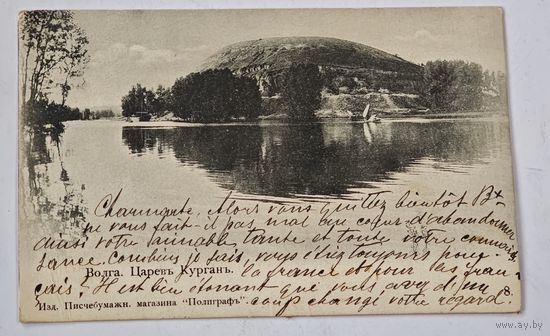 Charmante, Alors vous quittez bientôt B
ne vous fait-il pas mal au cœur d'abandonner
ainsi votre aimable tante et toute votre connais-
sance. Combien je sais, vous étiez toujours pour
Волга. Царевъ Курганъ. la france et pour les fran-
çais! Il est bien étonnant que vous avez
Изд. Писчебумажн. магазина "Полиграфъ". changé votre regard.
8.
www.ay.by